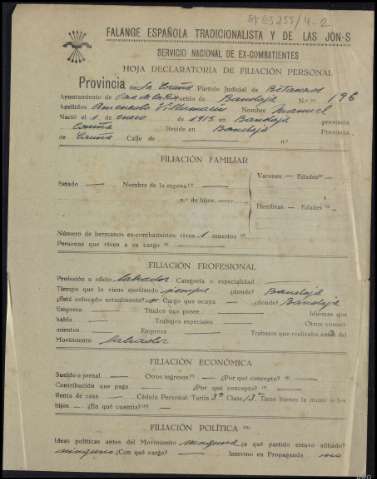 FALANGE ESPAÑOLA TRADICIONALISTA Y DE LAS JON-S
SERVICIO NACIONAL DE EX-COMBATIENTES
HOJA DECLARATORIA DE FILIACIÓN PERSONAL
Provincia de La Coruña Partido Judicial de Betanzos
Ayuntamiento de de Bandoja N.º 196
Apellidos Nombre Manuel
Nació el 1 de enero de 1915 en Bandoja provincia
Coruña Reside en Bandoja Provincia
de Coruña Calle de n.º
FILIACIÓN FAMILIAR
Varones — Edades
Estado — Nombre de la esposa
n.º de hijos
Hembras — Edades
Número de hermanos ex-combatientes vivos 1 muertos
Personas que viven a su cargo
FILIACIÓN PROFESIONAL
Profesión u oficio labrador Categoría o especialidad
Tiempo que la viene ejerciendo siempre ¿dónde? Bandoja
¿Está colocado actualmente? Cargo que ocupa — ¿dónde? Bandoja
Empresa Títulos que posee Idiomas que
habla Trabajos especiales Otros conoci-
mientos Empresa Trabajos que realizaba antes del
Movimiento labrador
FILIACIÓN ECONÓMICA
Sueldo o jornal — Otros ingresos ¿Por qué concepto?
Contribución que paga ¿Por qué concepto?
Renta de casa — Cédula Personal Tarifa 3ª Clase 13ª Tiene bienes la mujer o los
hijos — ¿En qué cuantía?
FILIACIÓN POLÍTICA
Ideas políticas antes del Movimiento ninguna ¿a qué partido estuvo afiliado?
ninguno ¿Con qué cargo? Intervino en Propaganda no